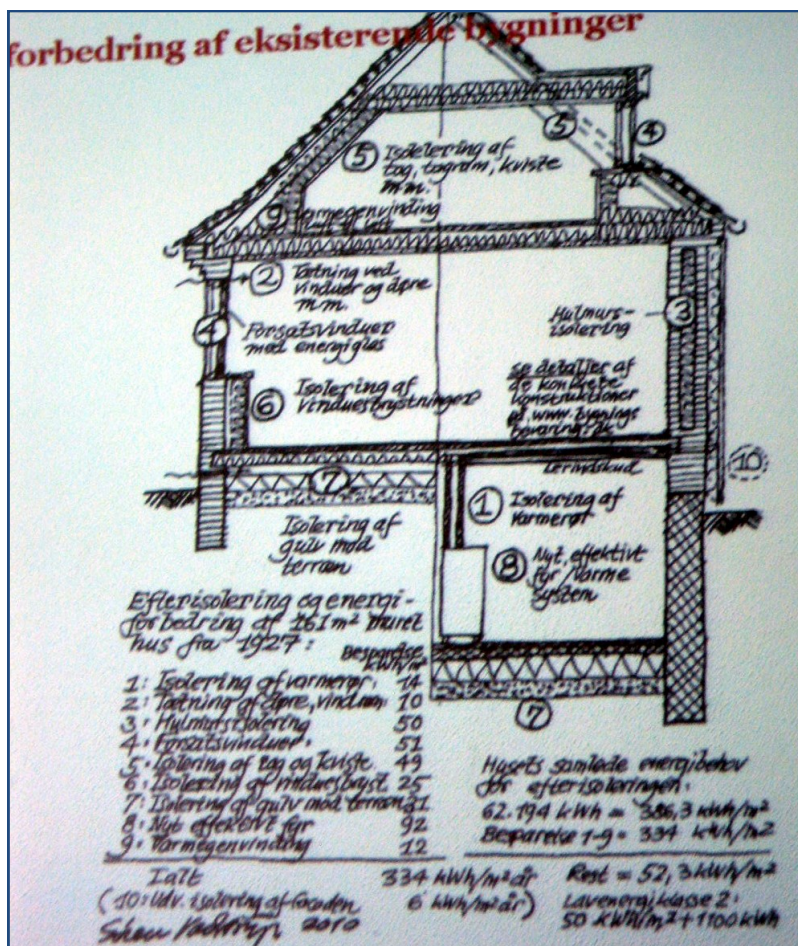 forbedring af eksisterende bygninger
5
4
5 Isolering af
tag, tagrum, kviste
m.m.
9 Varmegenvinding
2 Tætning ved
vinduer og døre
m.m.
4 Forsatsvinduer
med energiglas
Hulmurs-
isolering
3
6 Isolering af
vinduesbrystninger
se detaljer af
de konkrete
konstruktioner
på www.bygnings
bevaring.dk
Lerindskud
10
7
Isolering af
gulv mod
terræn
1 Isolering af
varmerør
8 Nyt, effektivt
fyr/varme
system
7
Efterisolering og energi-
forbedring af 161 m² muret
hus fra 1927:
Besparelse
kWh/m²
1: Isolering af varmerør: 14
2: Tætning af døre, vinduer: 10
3: Hulmursisolering 50
4: Forsatsvinduer: 51
5: Isolering af tag og kviste 49
6: Isolering af vinduesbryst 25
7: Isolering af gulv mod terræn 31
8: Nyt effektivt fyr 92
9: Varmegenvinding 12
Ialt 334 kWh/m² år
(10: Udv. isolering af facaden 6 kWh/m² år)
2010
Husets samlede energibehov
før efterisoleringen:
62.194 kWh = 386,3 kWh/m²
Besparelse 1-9 = 334 kWh/m2
Rest = 52,3 kWh/m²
Lavenergiklasse 2:
50 kWh/m² + 1100 kWh